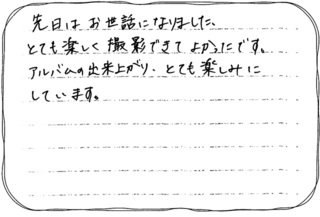 先日は お世話になりました、
とても楽しく撮影できてよかったです。
アルバムの出来上がり、とても楽しみに
しています。